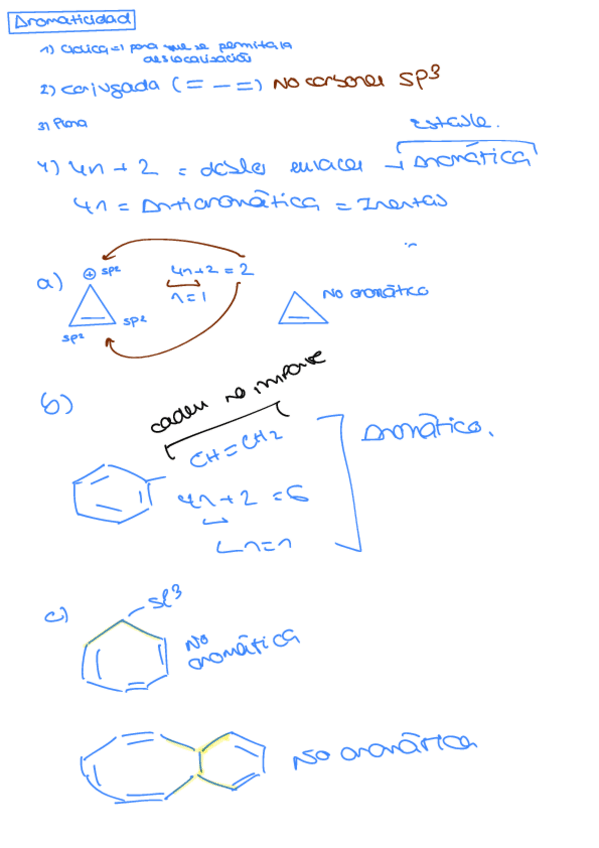 Aromaticidad
1) Cíclica => para que se permita la
deslocalización
2) conjugada (= - =) NO carbones sp3
3) Plana
Estable.
4) 4n + 2 = dobles enlaces → Aromática
4n = Antiaromática = Inestas
a) ⊕ sp2 4n+2 = 2
n=1
sp2
sp2
NO aromático
b)
cadena no importa
CH=CH2
4n+2 = 6
n=n
Aromático.
c) sp3
No
aromática
NO aromática